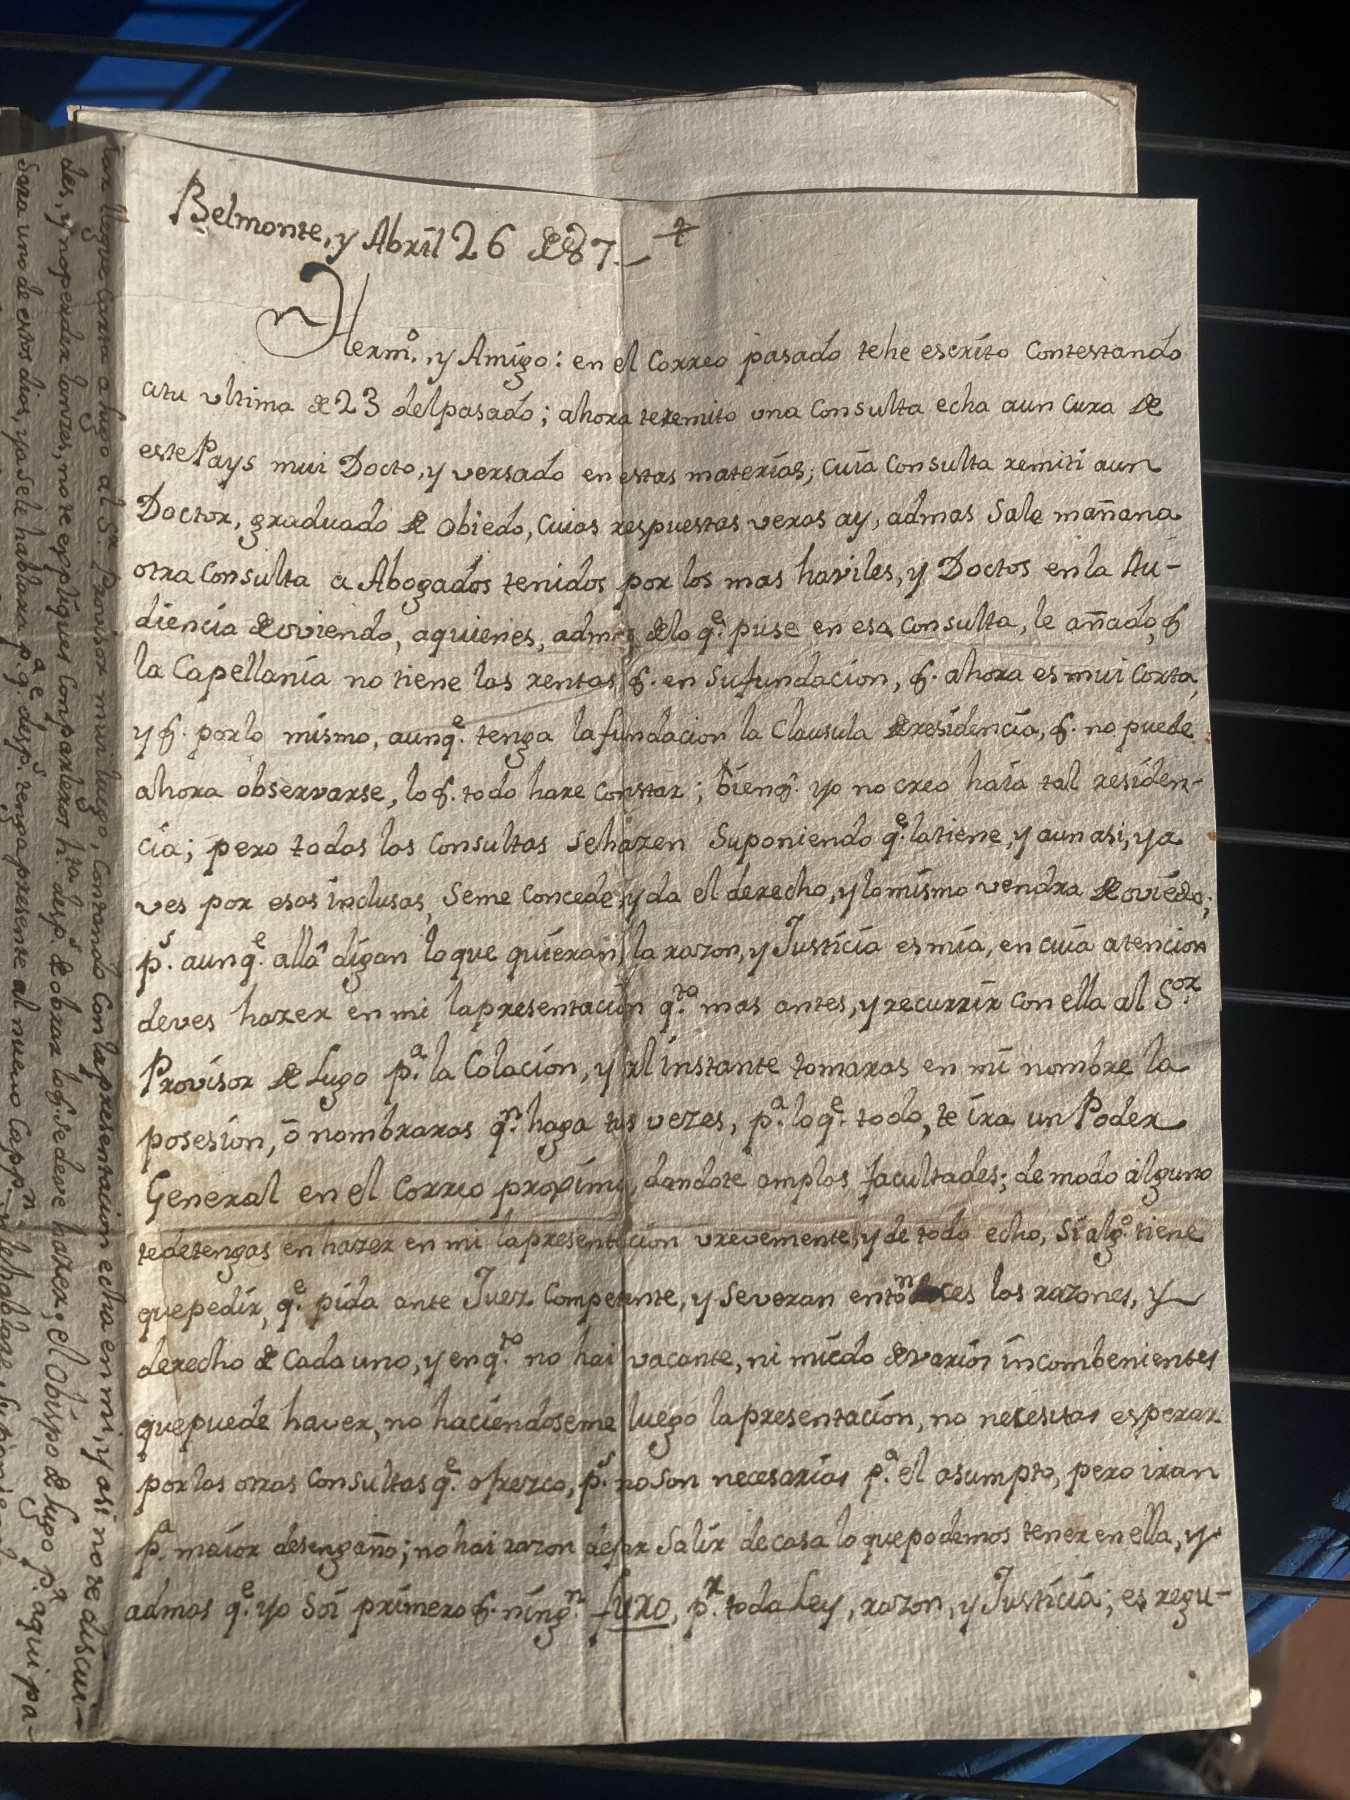 Belmonte, y Abril 26 de 87.
Herm.º, y Amigo: en el Correo pasado tehe escrito Contestando
atu vltima de 23 delpasado; ahora teremito vna Consulta echa aun Cura de
estePays mui Docto, y versado en estas materias; Cuia Consulta remiti aun
Doctor, graduado de Obiedo, Cuias respuestas veras ay, admas Sale mañana
otra Consulta a Abogados tenidos por los mas haviles, y Doctos en la Au-
diencia de oviendo, aquienes, admas delo q.e puse en esa Consulta, le añado, q.
la Capellania no tiene las rentas q. en Sufundacion, q. ahora es mui Corta,
y q. porlo mismo, aunq.e tenga lafundacion la Clausula de residencia, q. no puede
ahora observarse, lo q. todo hare Constar; bien q. yo no creo haia tal residen-
cia; pero todas las Consultas Sehazen Suponiendo q.e latiene, y aun asi, ya
ves por esas inclusas, Seme Concede, y da el derecho, y lomismo vendra de oviedo;
p.s aunq.e allâ digan lo que quieran, la razon, y Justicia es mia, en cuia atencion
deves hazer en mi lapresentacion q.to mas antes, y recurrir Con ella al S.or
Provisor de Lugo p.a la Colacion, y al instante tomaras en mi nombre la
posesion, ō nombraras q.n haga tus vezes, p.a loq.e todo, te ira un Poder
General en el Correo proximo, dandote amplas facultades; de modo alguno
tedetengas en hazer en mi lapresentacion vrevemente, y de todo echo, Si alg.º tiene
quepedir, q.e pida ante Juez Competente, y Severan entonces las razones, y
derecho de Cada uno, y en q.to no hai vacante, ni miedo de varios incombenientes
quepuede haver, no haciendoseme luego lapresentacion, no necesitas esperar
porlas otras Consultas q.e ofrezco, p.s noson necesarias p.a el asumpto, pero iran
p.a maior desengaño; no hai razon dejar Salir de casa lo quepodemos tener en ella, y
admas q.e yo Soi primero q. ning.n , p.r toda Ley, razon, y Justicia; es regu-
lar llegue Carta a lugo al S.r Provisor mui luego, Contando Con lapresentacion echa en mi, y asi no te discui-
des, y noperder lanzes, no te expliques Con parleros h.ta desp.s de obrar lo q. Se deve hazer; el Obispo de lugo p.r aqui pa-
sara uno de estos dias, ya Sele hablara p.a q.e desp.s tenga presente al nuevo Capp.n